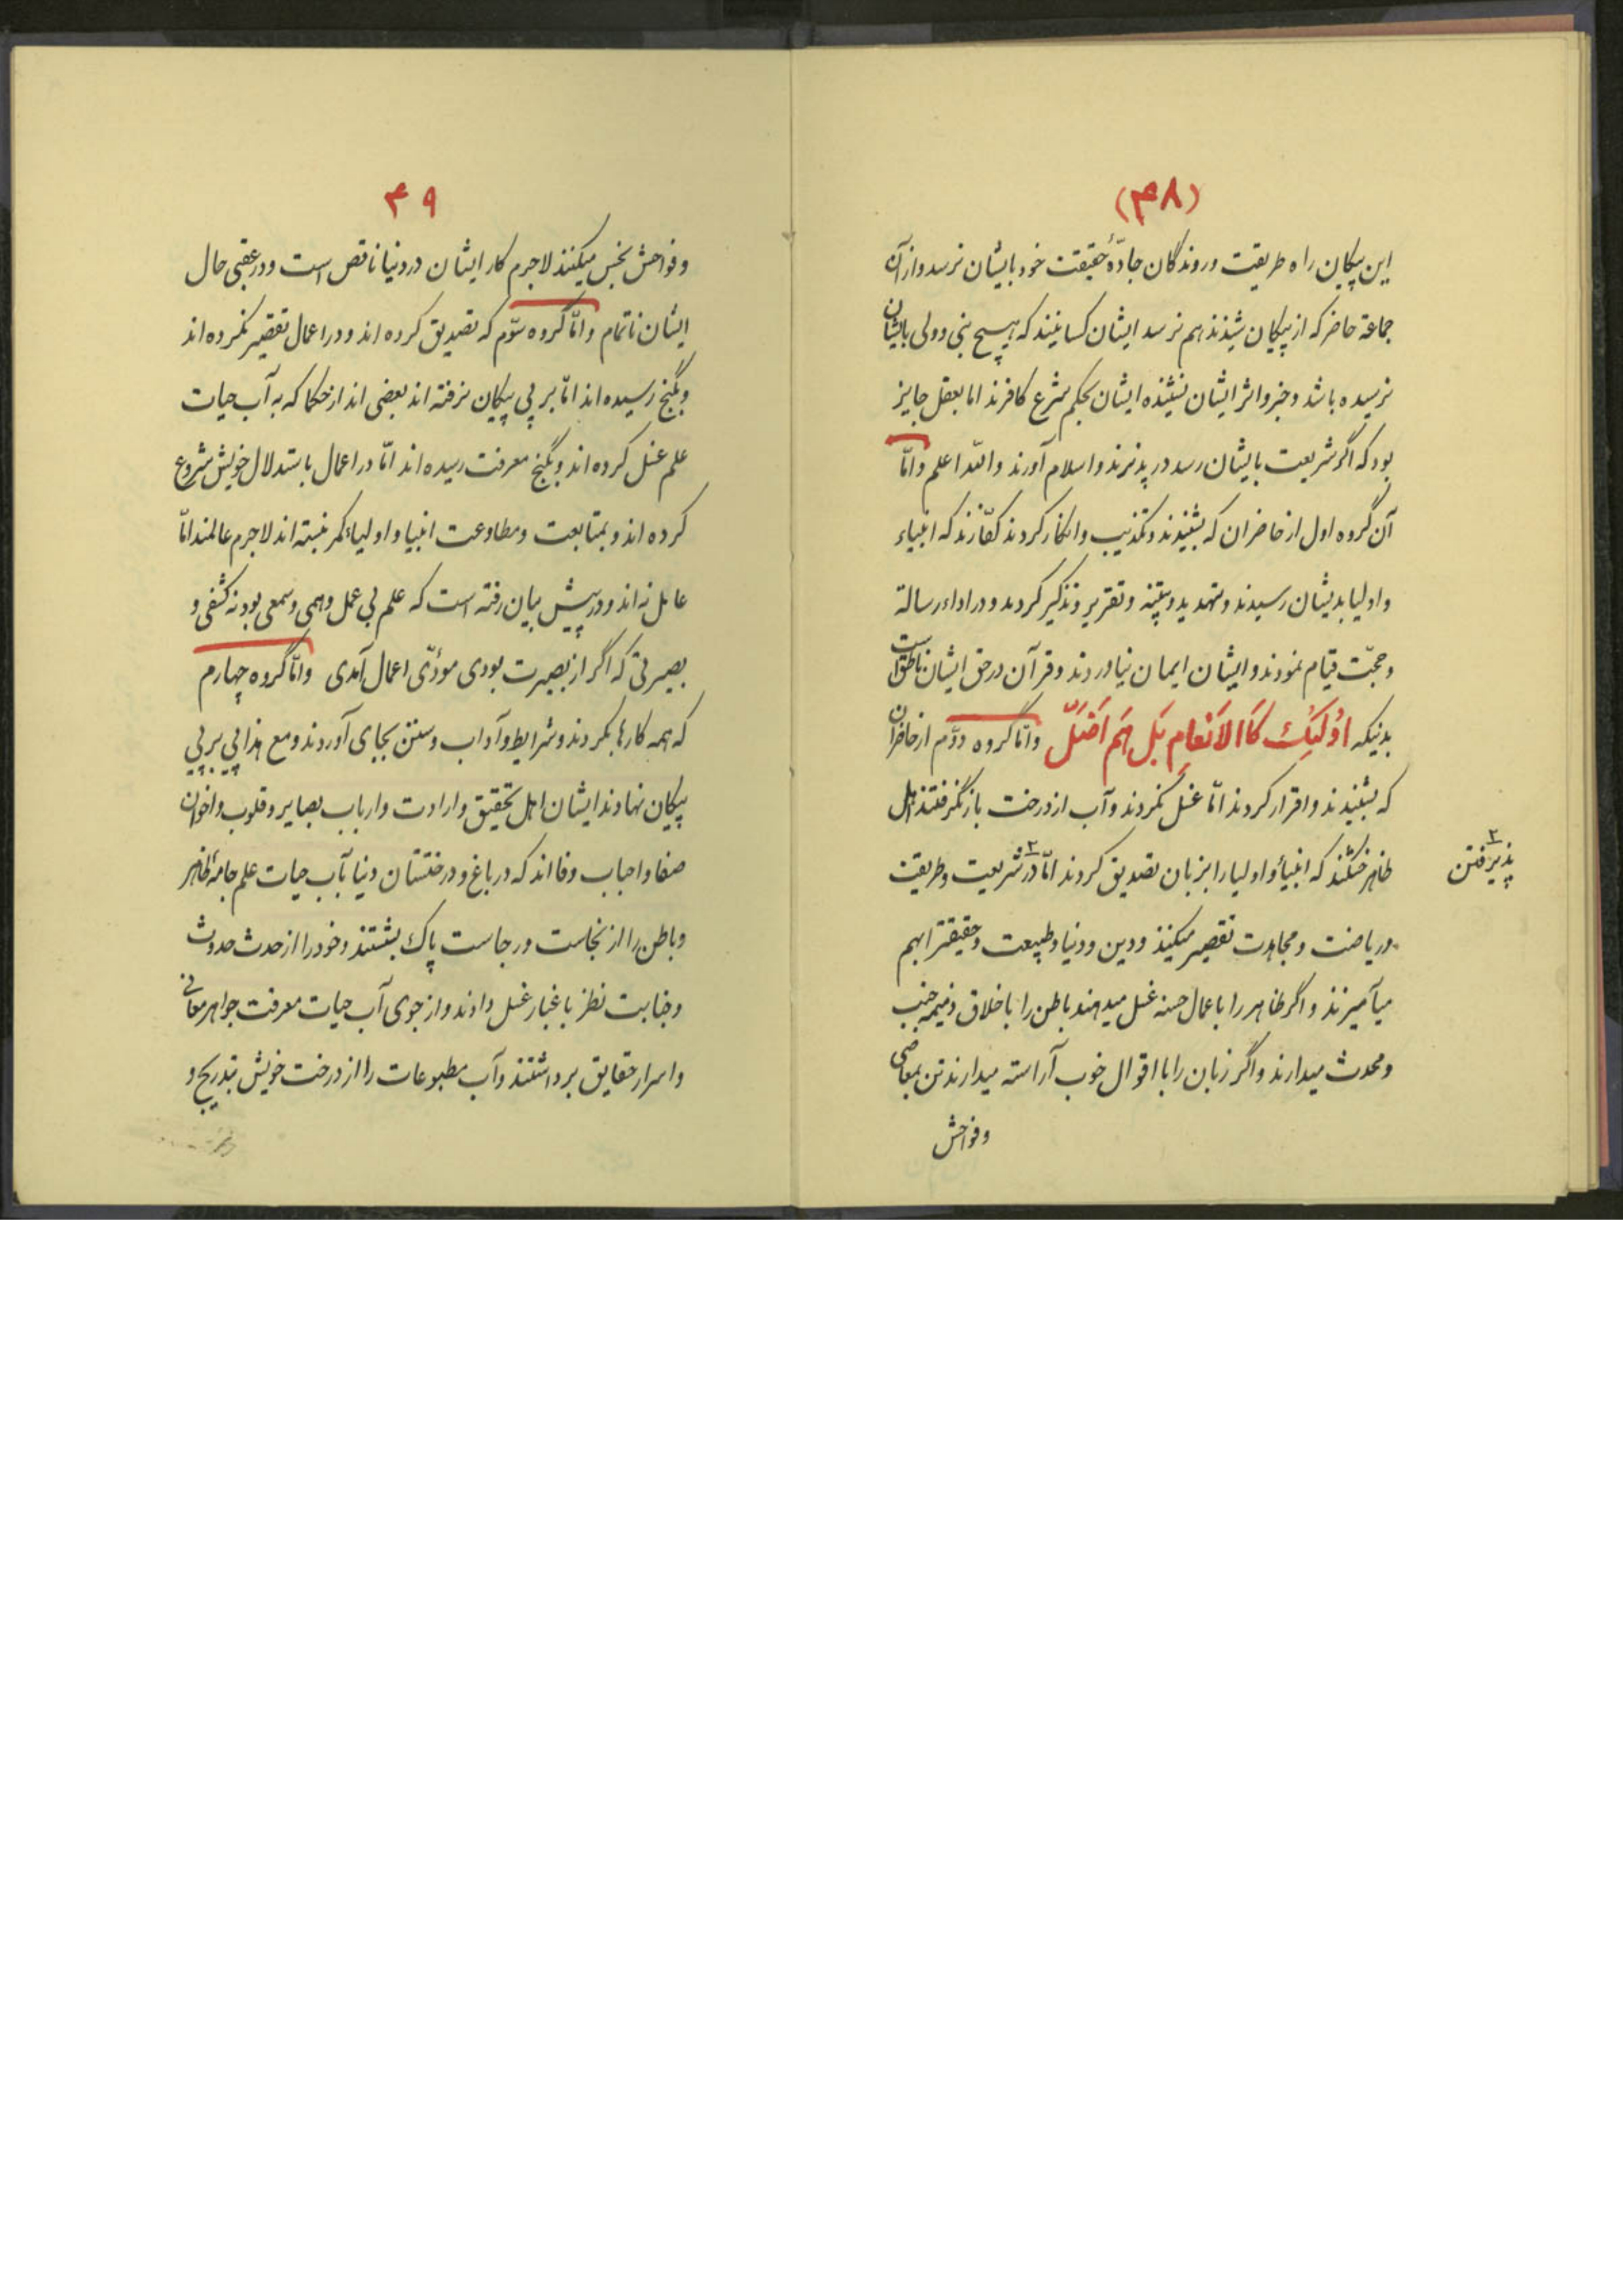 (۴۸)
این پیکان راه طریقت و روندگان جادّهٔ حقیقت خود بایشان نرسد و از آن
جماعة حاضر که از پیکان شنیدند هم نرسد ایشان کسانیند که هیچ نبی و ولی بایشان
نرسیده باشد و خبر و اثر ایشان نشنیده ایشان بحکم شرع کافرند اما بعقل جایز
بود که اگر شریعت بایشان رسد در پذیرند و اسلام آورند والله اعلم وامّا
آن گروه اول از حاضران که بشنیدند و تکذیب و انکار کردند کفّارند که انبیاء
و اولیا بدیشان رسیدند و تهدید و تنبیه و تقریر و تذکیر کردند و در اداء رسالة
و حجّت قیام نمودند و ایشان ایمان نیاوردند و قرآن در حق ایشان ناطق است
بدنیکه اُولَئِكَ کَاالاَنْعامِ بَل هَم اَضَلّ وامّا گروه دوّم از حاضران
که بشنیدند و اقرار کردند امّا غسل نکردند و آب از درخت باز نگرفتند اهل
ظاهر خشکند که انبیاء و اولیا را بزبان تصدیق کردند امّا در ۲ شریعت و طریقت
۲ پذیرفتن
و ریاضت و مجاهدت تقصیر میکنند و دین و دنیا و طبیعت و حقیقت را بهم
میآمیزند و اگر ظاهر را باعمال حسنه غسل میدهند باطن را باخلاق ذمیمه جنب
و محدث میدارند و اگر زبان را با اقوال خوب آراسته میدارند تن بمعاصی
وفواحش
۴۹
و فواحش نجس میکنند لاجرم کار ایشان در دنیا ناقص است و در عقبی حال
ایشان ناتمام وامّا گروه سوّم که تصدیق کرده اند و در اعمال تقصیر نکرده اند
و بگنج رسیده اند امّا بر پی پیکان نرفته اند بعضی اند از حکما که به آب حیات
علم غسل کرده اند و بگنج معرفت رسیده اند امّا در اعمال باستدلال خویش شروع
کرده اند و بمتابعت و مطاوعت انبیا و اولیاء کمر نبسته اند لاجرم عالمند امّا
عامل نه اند و در پیش بیان رفته است که علم بی عمل وهمی و سمعی بود نه کشفی و
بصیرتی که اگر از بصیرت بودی مؤدّی اعمال آمدی وامّا گروه چهارم
که همه کارها بکردند و شرایط و آداب و سنن بجای آوردند و مع هذا پی بر پی
پیکان نهادند ایشان اهل تحقیق و ارادت و ارباب بصایر و قلوب و اخوان
صفا و احباب وفا اند که در باغ و درختستان دنیا بآب حیات علم جامهٔ ظاهر
و باطن را از نجاست و رجاست پاک بشستند و خود را از حدث حدوث
و جنابت نظر باغیار غسل دادند و از جوی آب حیات معرفت جواهر معانی
و اسرار حقایق برداشتند و آب مطبوعات را از درخت خویش بتدریج و